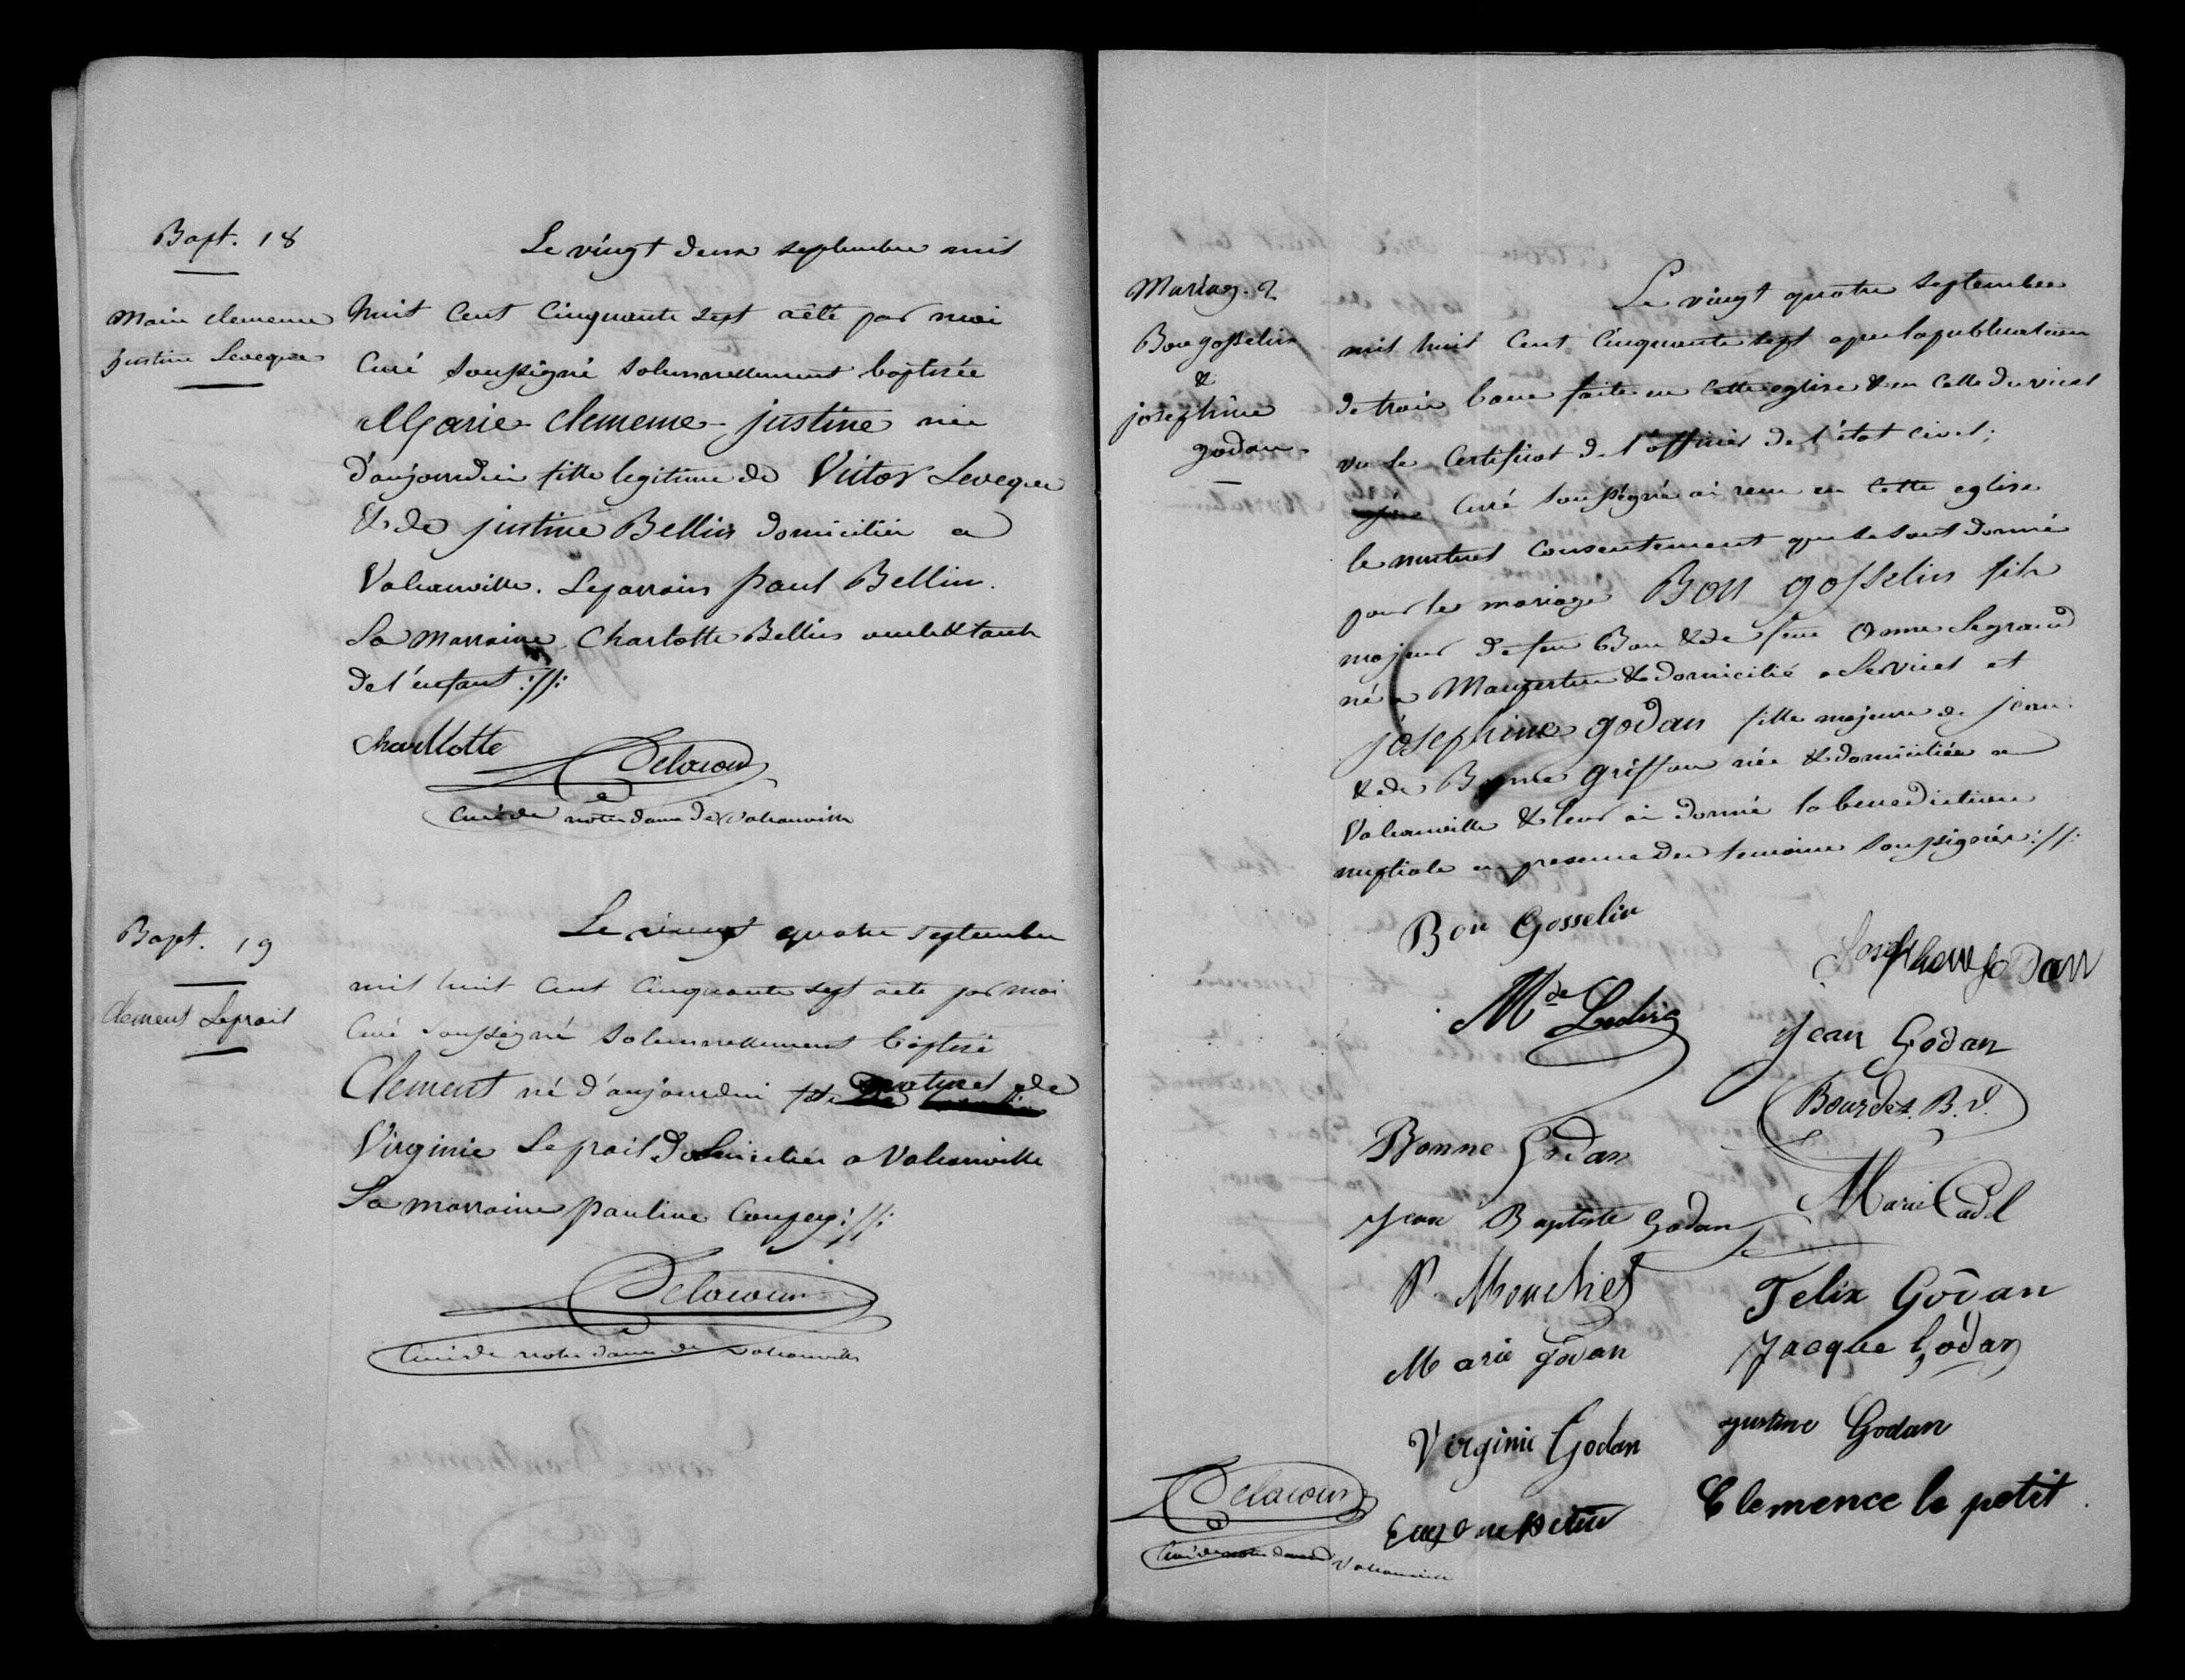 Bapt. 18
Marie clemence
justine Leveque
Le vingt deux septembre mil
huit cent cinquante sept a été par moi
Curé soussigné solennellement baptisée
Marie - clemence - justine née
d'aujourdui fille legitime de Victor Leveque
& de justine Bellin domiciliés a
Valcanville. Le parrain paul Bellin.
La marraine Charlotte Bellin oncle & tante
de l'enfant ://:
Charllotte
Delacour
Curé de notre dame de Valcanville
Bapt. 19
Clement Leprait
Le vingt quatre septembre
mil huit cent cinquante sept a été par moi
Curé soussigné solennellement baptisé
Clement né d'aujourdui fils naturel de
Virginie Leprait domiciliée a Valcanville
La marraine pauline Coupey ://:
Delacour
Curé de notre dame de Valcanville
Mariag. 2
Bon gosselin
&
josephine
godan
Le vingt quatre septembre
mil huit cent cinquante sept apres la publication
de trois bans faite en cette eglise & en celle du vicel
vu le certificat de l'officier de l'état civil;
Curé soussigné ai recu en cette eglise
le mutuel consentement que se sont donné
pour le mariage Bon gosselin fils
majeur de feu Bon & de feue Anne Legrand
né a & domicilié a Le Vicel et
josephine godan fille majeure de jean
& de Bonne griffon née & domiciliée a
Valcanville & leur ai donné la benediction
nuptiale en presence des temoins soussignés ://:
Bon Gosselin
Josephine Godan
Mde Leclerc
Jean Godan
Bourdet. B. V.
Bonne Godan
Marie Cadel
Jean Baptiste Godan
P. Mouchel
Felix Godan
Marie Godan
Jacque Godan
Virginie Godan
justine Godan
Delacour
Clemence le petit
Curé de notre dame de Valcanville